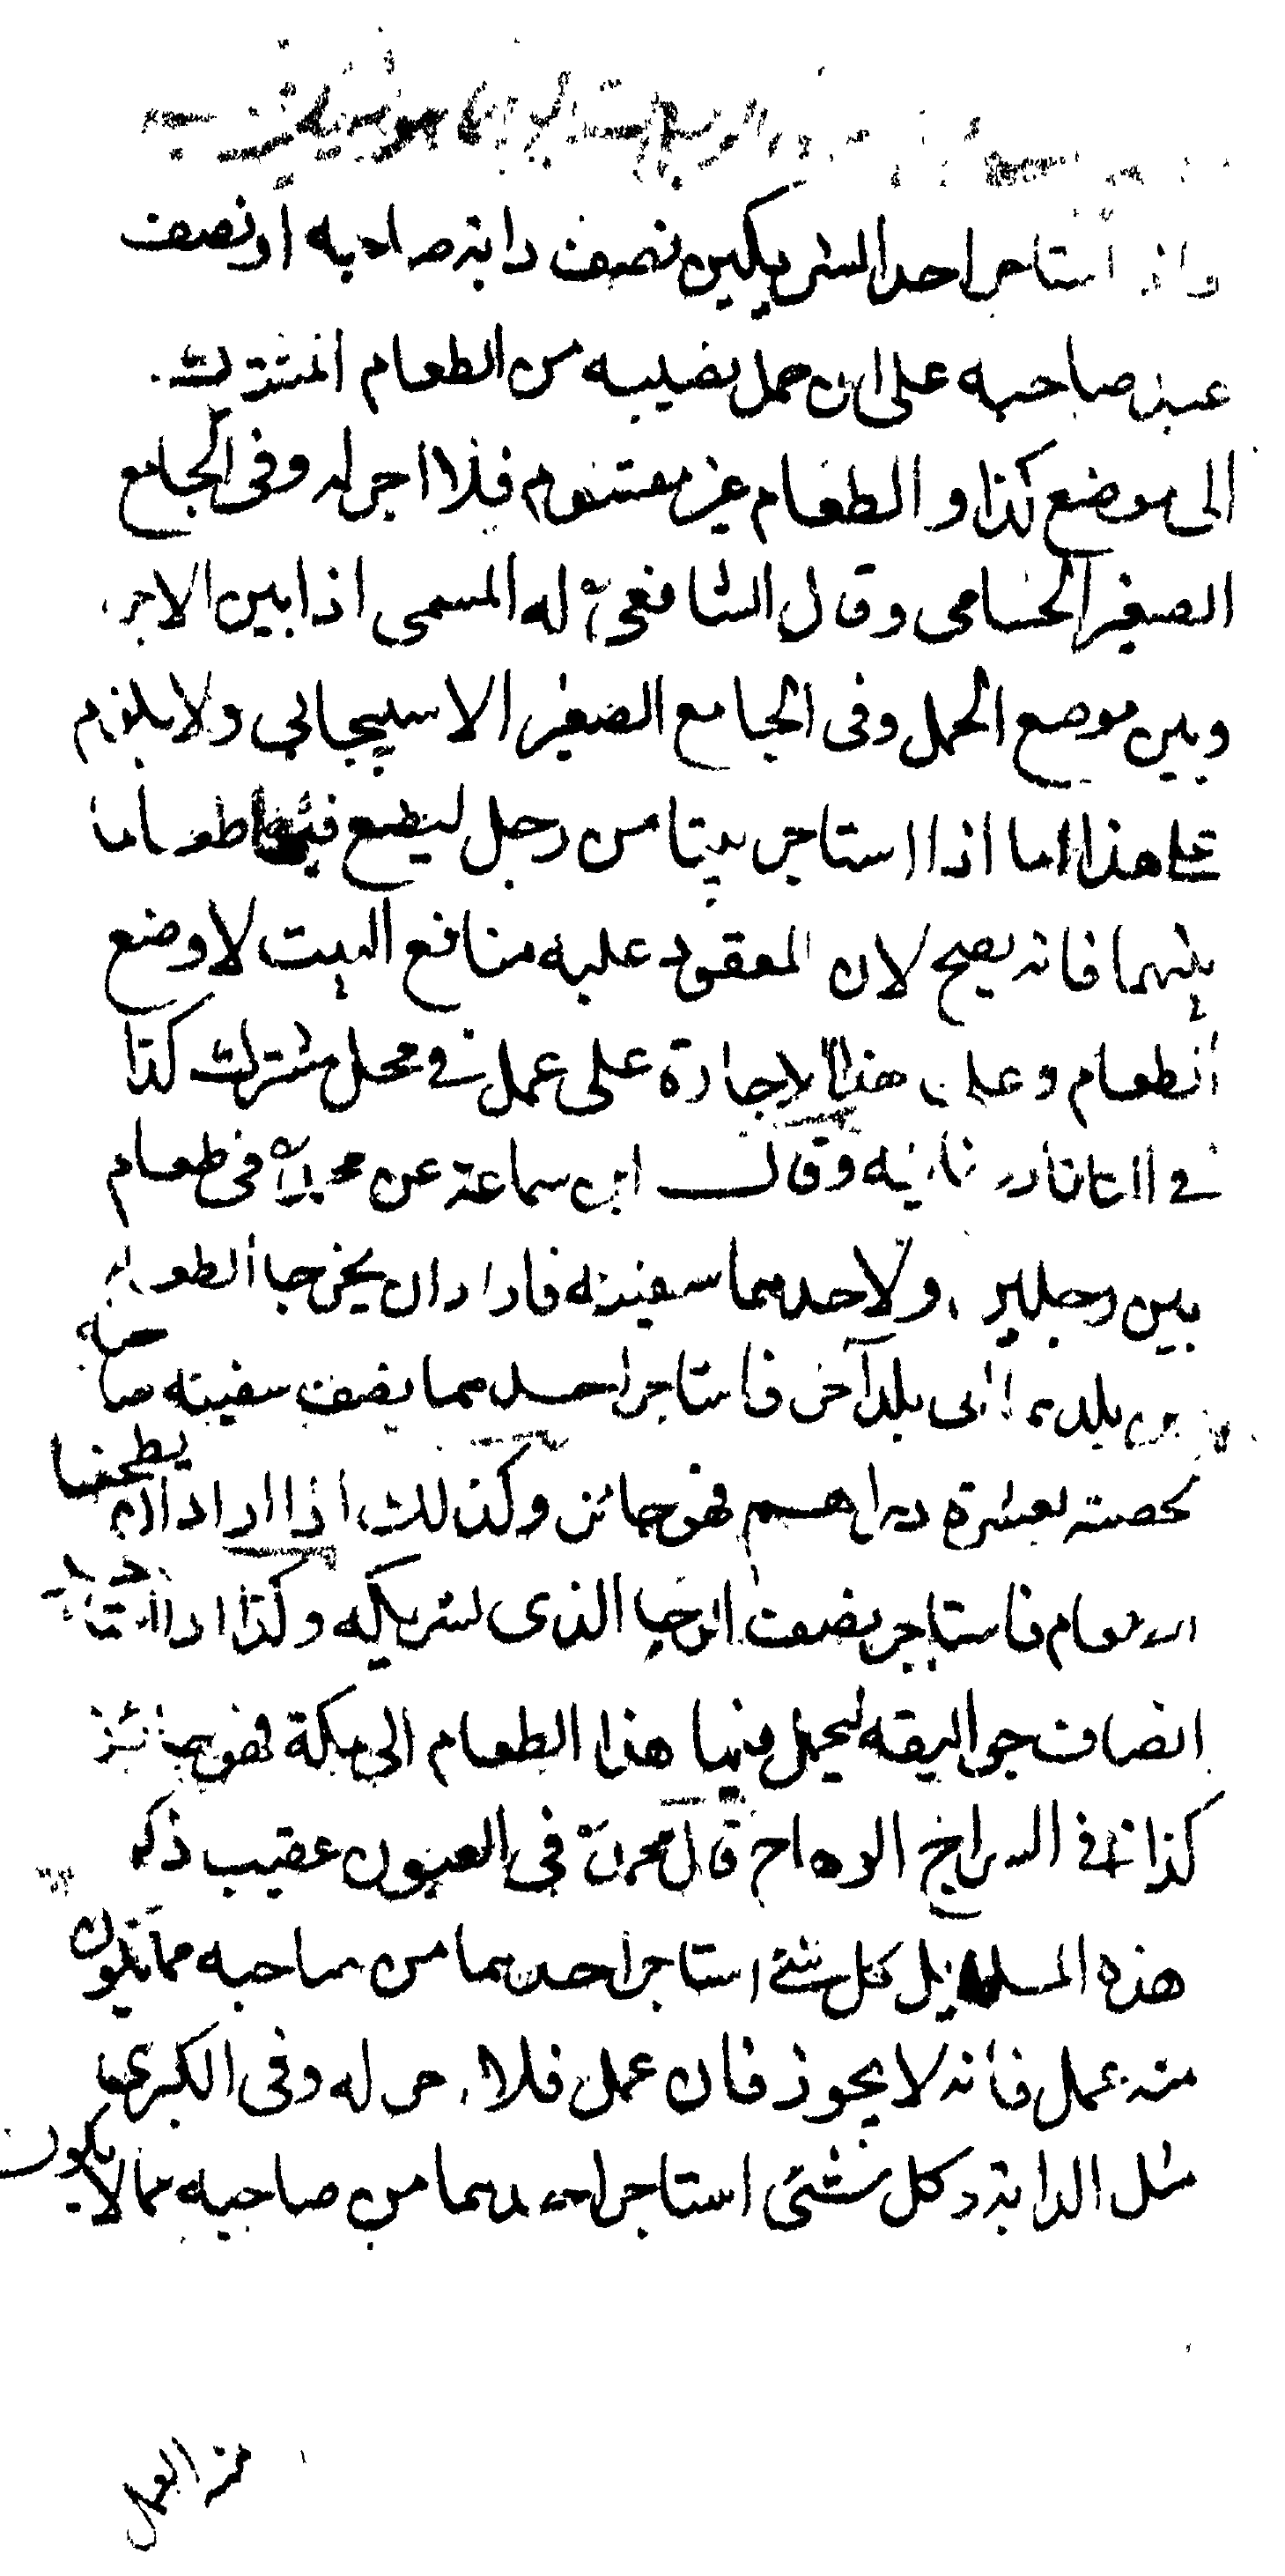 واذا استاجر احد الشريكين نصف دابة صاحبه او نصف
عبد صاحبه على ان حمل نصيبه من الطعام المشترك
الى موضع كذا والطعام غير مقسوم فلا اجر له وفى الجامع
الصغير الحسامى وقال الشافعى له المسمى اذا بين الاجر
وبين موضع الحمل وفى الجامع الصغير الاسبيجابي ولا يلزم
على هذا اما اذا استاجر بيتا من رجل ليضع فيها طعاما
بينهما فانه يصح لان المعقود عليه منافع البيت لا وضع
الطعام وعلى هذا الاجارة على عمل في محل مشترك كذا
في التاتارخانيه وقال ابن سماعة عن محمد فى طعام
بين رجلين ولاحدهما سفينة فارادا ان يخرجا الطعام
من بلدهما الى بلد آخر فاستاجر احدهما نصف سفينة صاحبه
بحصته بعشرة دراهم فهو جائز وكذلك اذا ارادا ان يطحنا
الطعام فاستاجر نصف الرحا الذى لشريكه وكذا اذا استاجر
انصاف جواليقه ليحمل فيها هذا الطعام الى مكة فهو جائز
كذا في السراج الوهاج قال محمد فى العيون عقيب ذكر
هذه المسايل كل شئ استاجر احدهما من صاحبه مما يكون
منه عمل فانه لا يجوز فان عمل فلا اجر له وفى الكبرى
مثل الدابة وكل شئى استاجر احدهما من صاحبه مما لا يكون
منه العمل